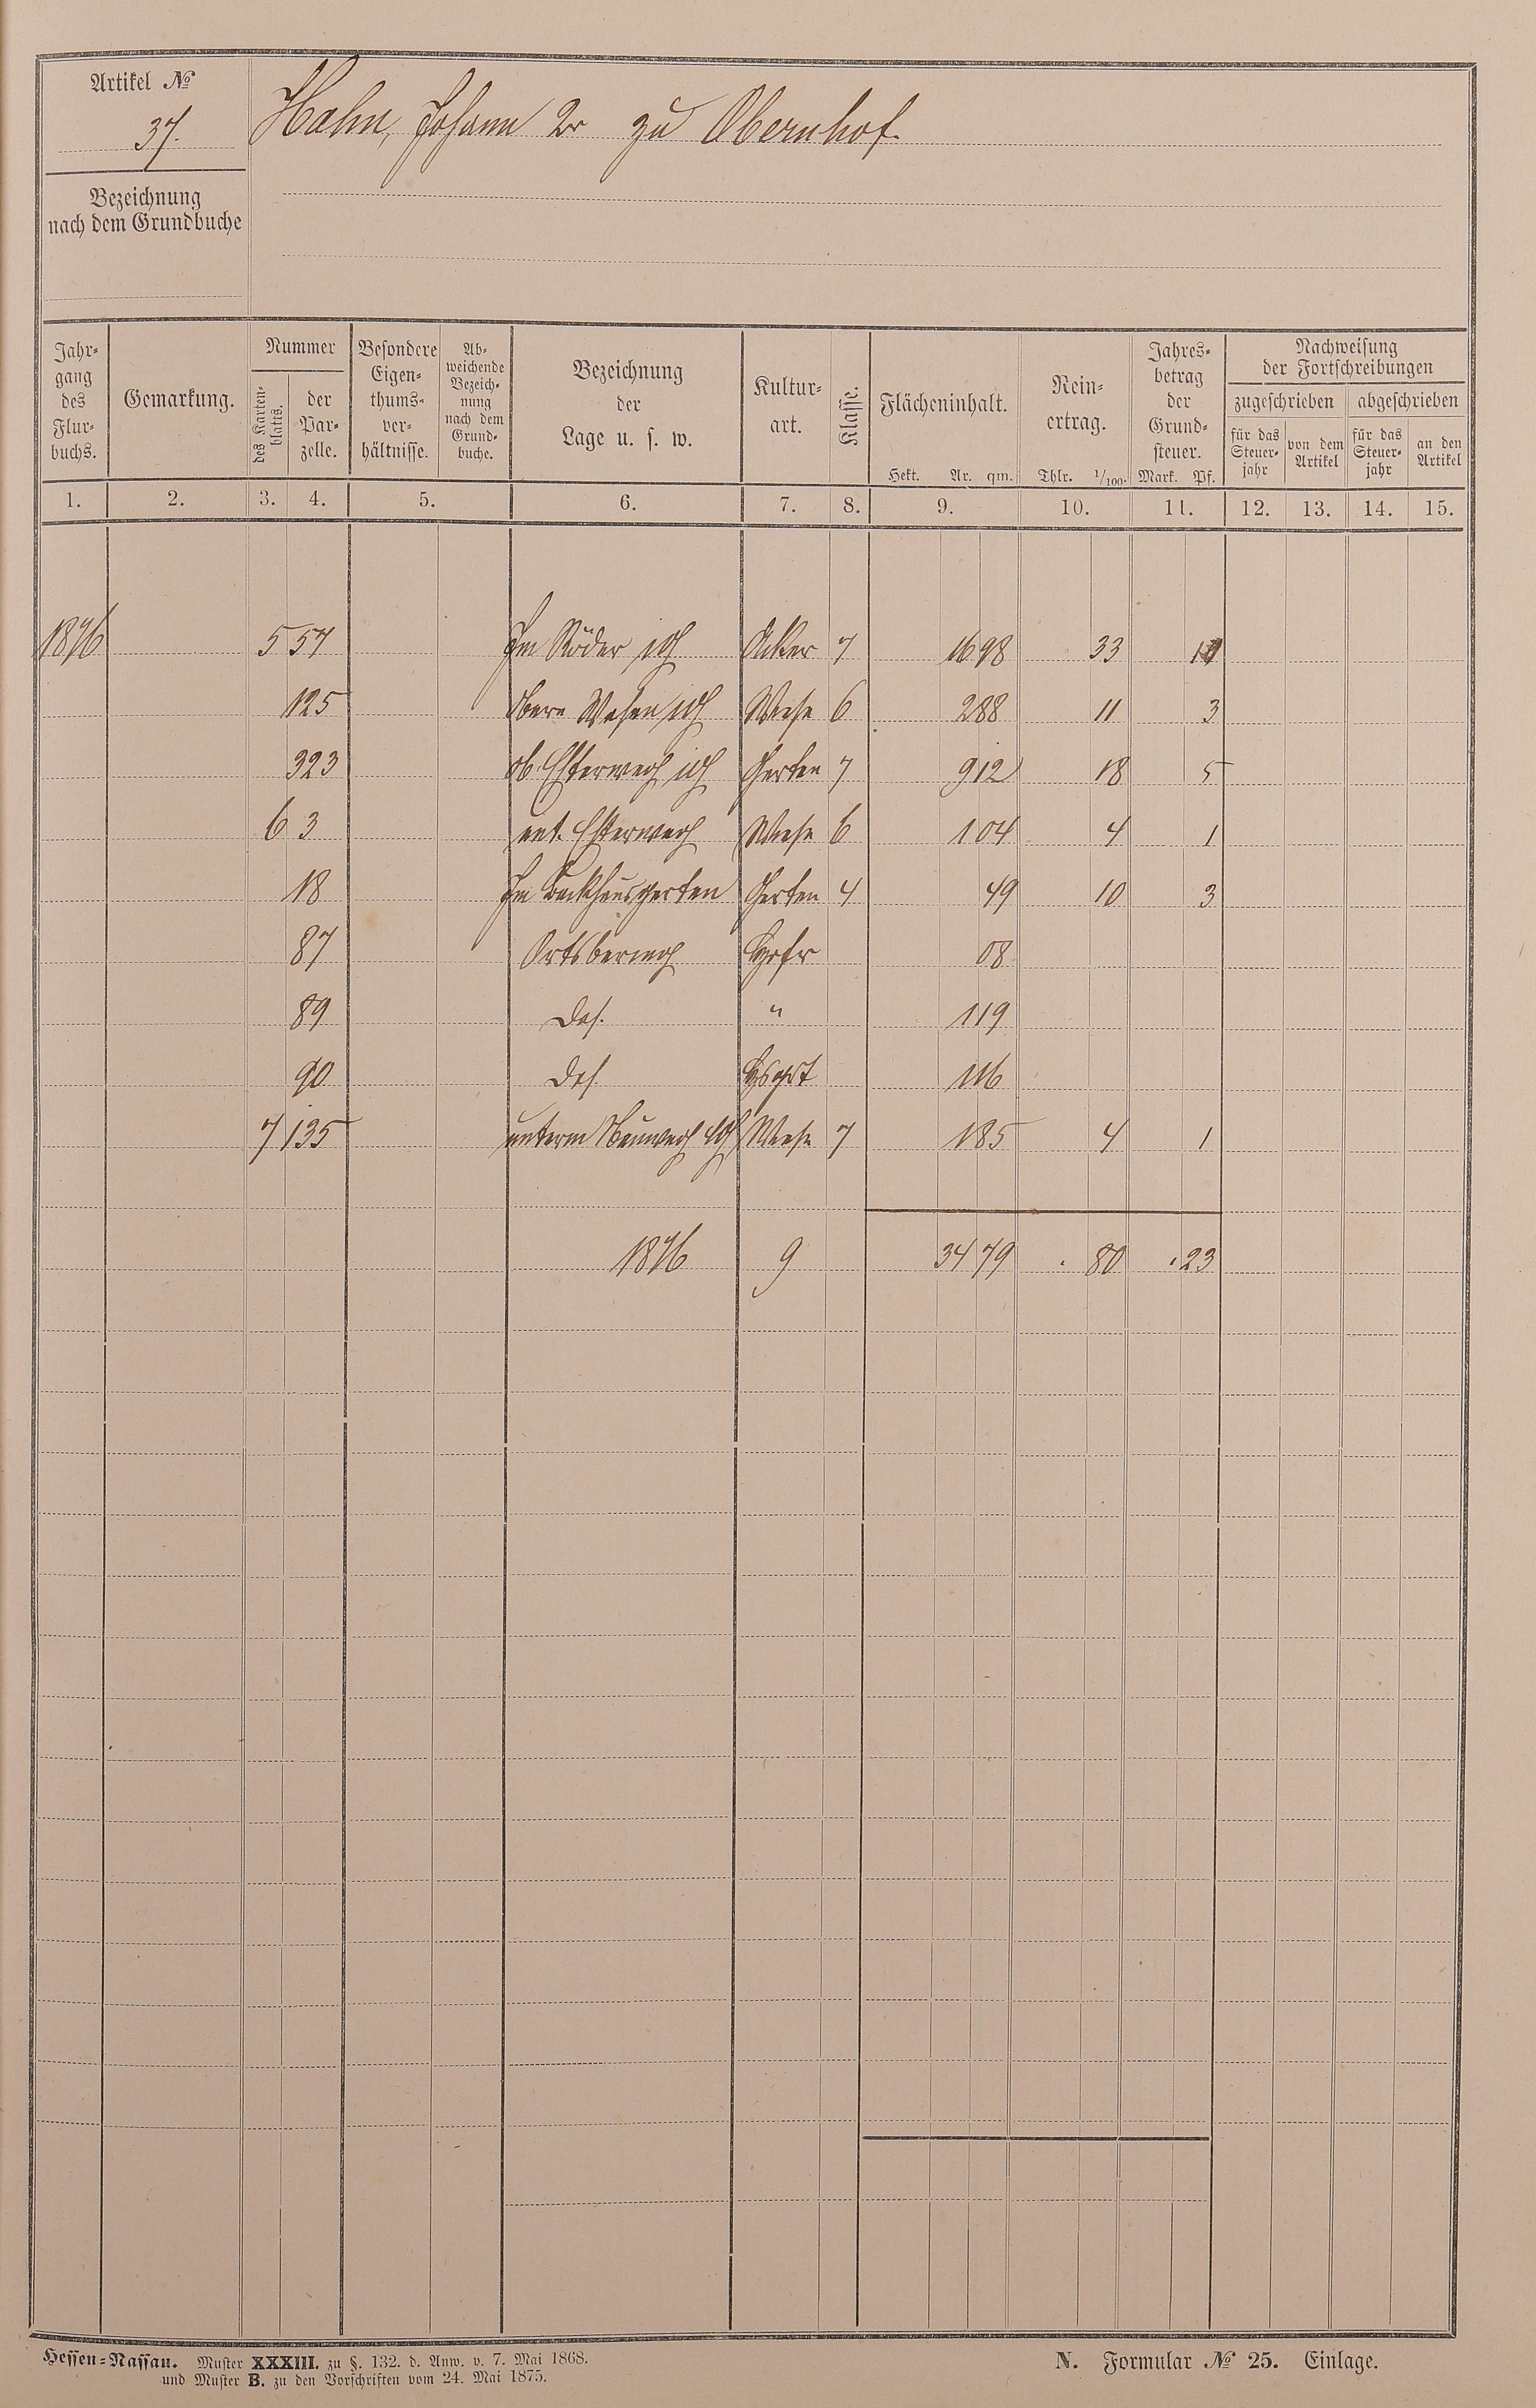 Artikel №
37.
Hahn, Johann 2r zu Obernhof.
Bezeichnung
nach dem Grundbuche
Jahr-
gang
des
Flur-
buchs.
Gemarkung.
Nummer
des Karten-
blatts.
der
Par-
zelle.
Besondere
Eigen-
thums-
ver-
hältnisse.
Ab-
weichende
Bezeich-
nung
nach dem
Grund-
buche.
Bezeichnung
der
Lage u. s. w.
Kultur-
art.
Klasse.
Flächeninhalt.
Hekt. Ar. qm.
Rein-
ertrag.
Thlr. 1/100.
Jahres-
betrag
der
Grund-
steuer.
Mark. Pf.
Nachweisung
der Fortschreibungen
zugeschrieben abgeschrieben
für das
Steuer-
jahr
von dem
Artikel
für das
Steuer-
jahr
an den
Artikel
1. 2. 3. 4. 5. 6. 7. 8. 9. 10. 11. 12. 13. 14. 15.
1876 5 57 Im Röder Acker 7 16 98 33
125 Wiese 6 2 88 11 3
323 Garten 7 9 12 18 5
6 3 unt. Wiese 6 1 04 4 1
18 Im Backhausgarten Garten 4 49 10 3
87 Ortsbering Hofr 08
89 Das. " 1 19
90 Das. Hsgrt 1 16
7 135 unterm Wiese 7 1 85 4 1
1876 9 34 79 . 80 . 23
Hessen-Nassau. Muster XXXIII. zu §. 132. d. Anw. v. 7. Mai 1868.
und Muster B. zu den Vorschriften vom 24. Mai 1875.
N. Formular № 25. Einlage.